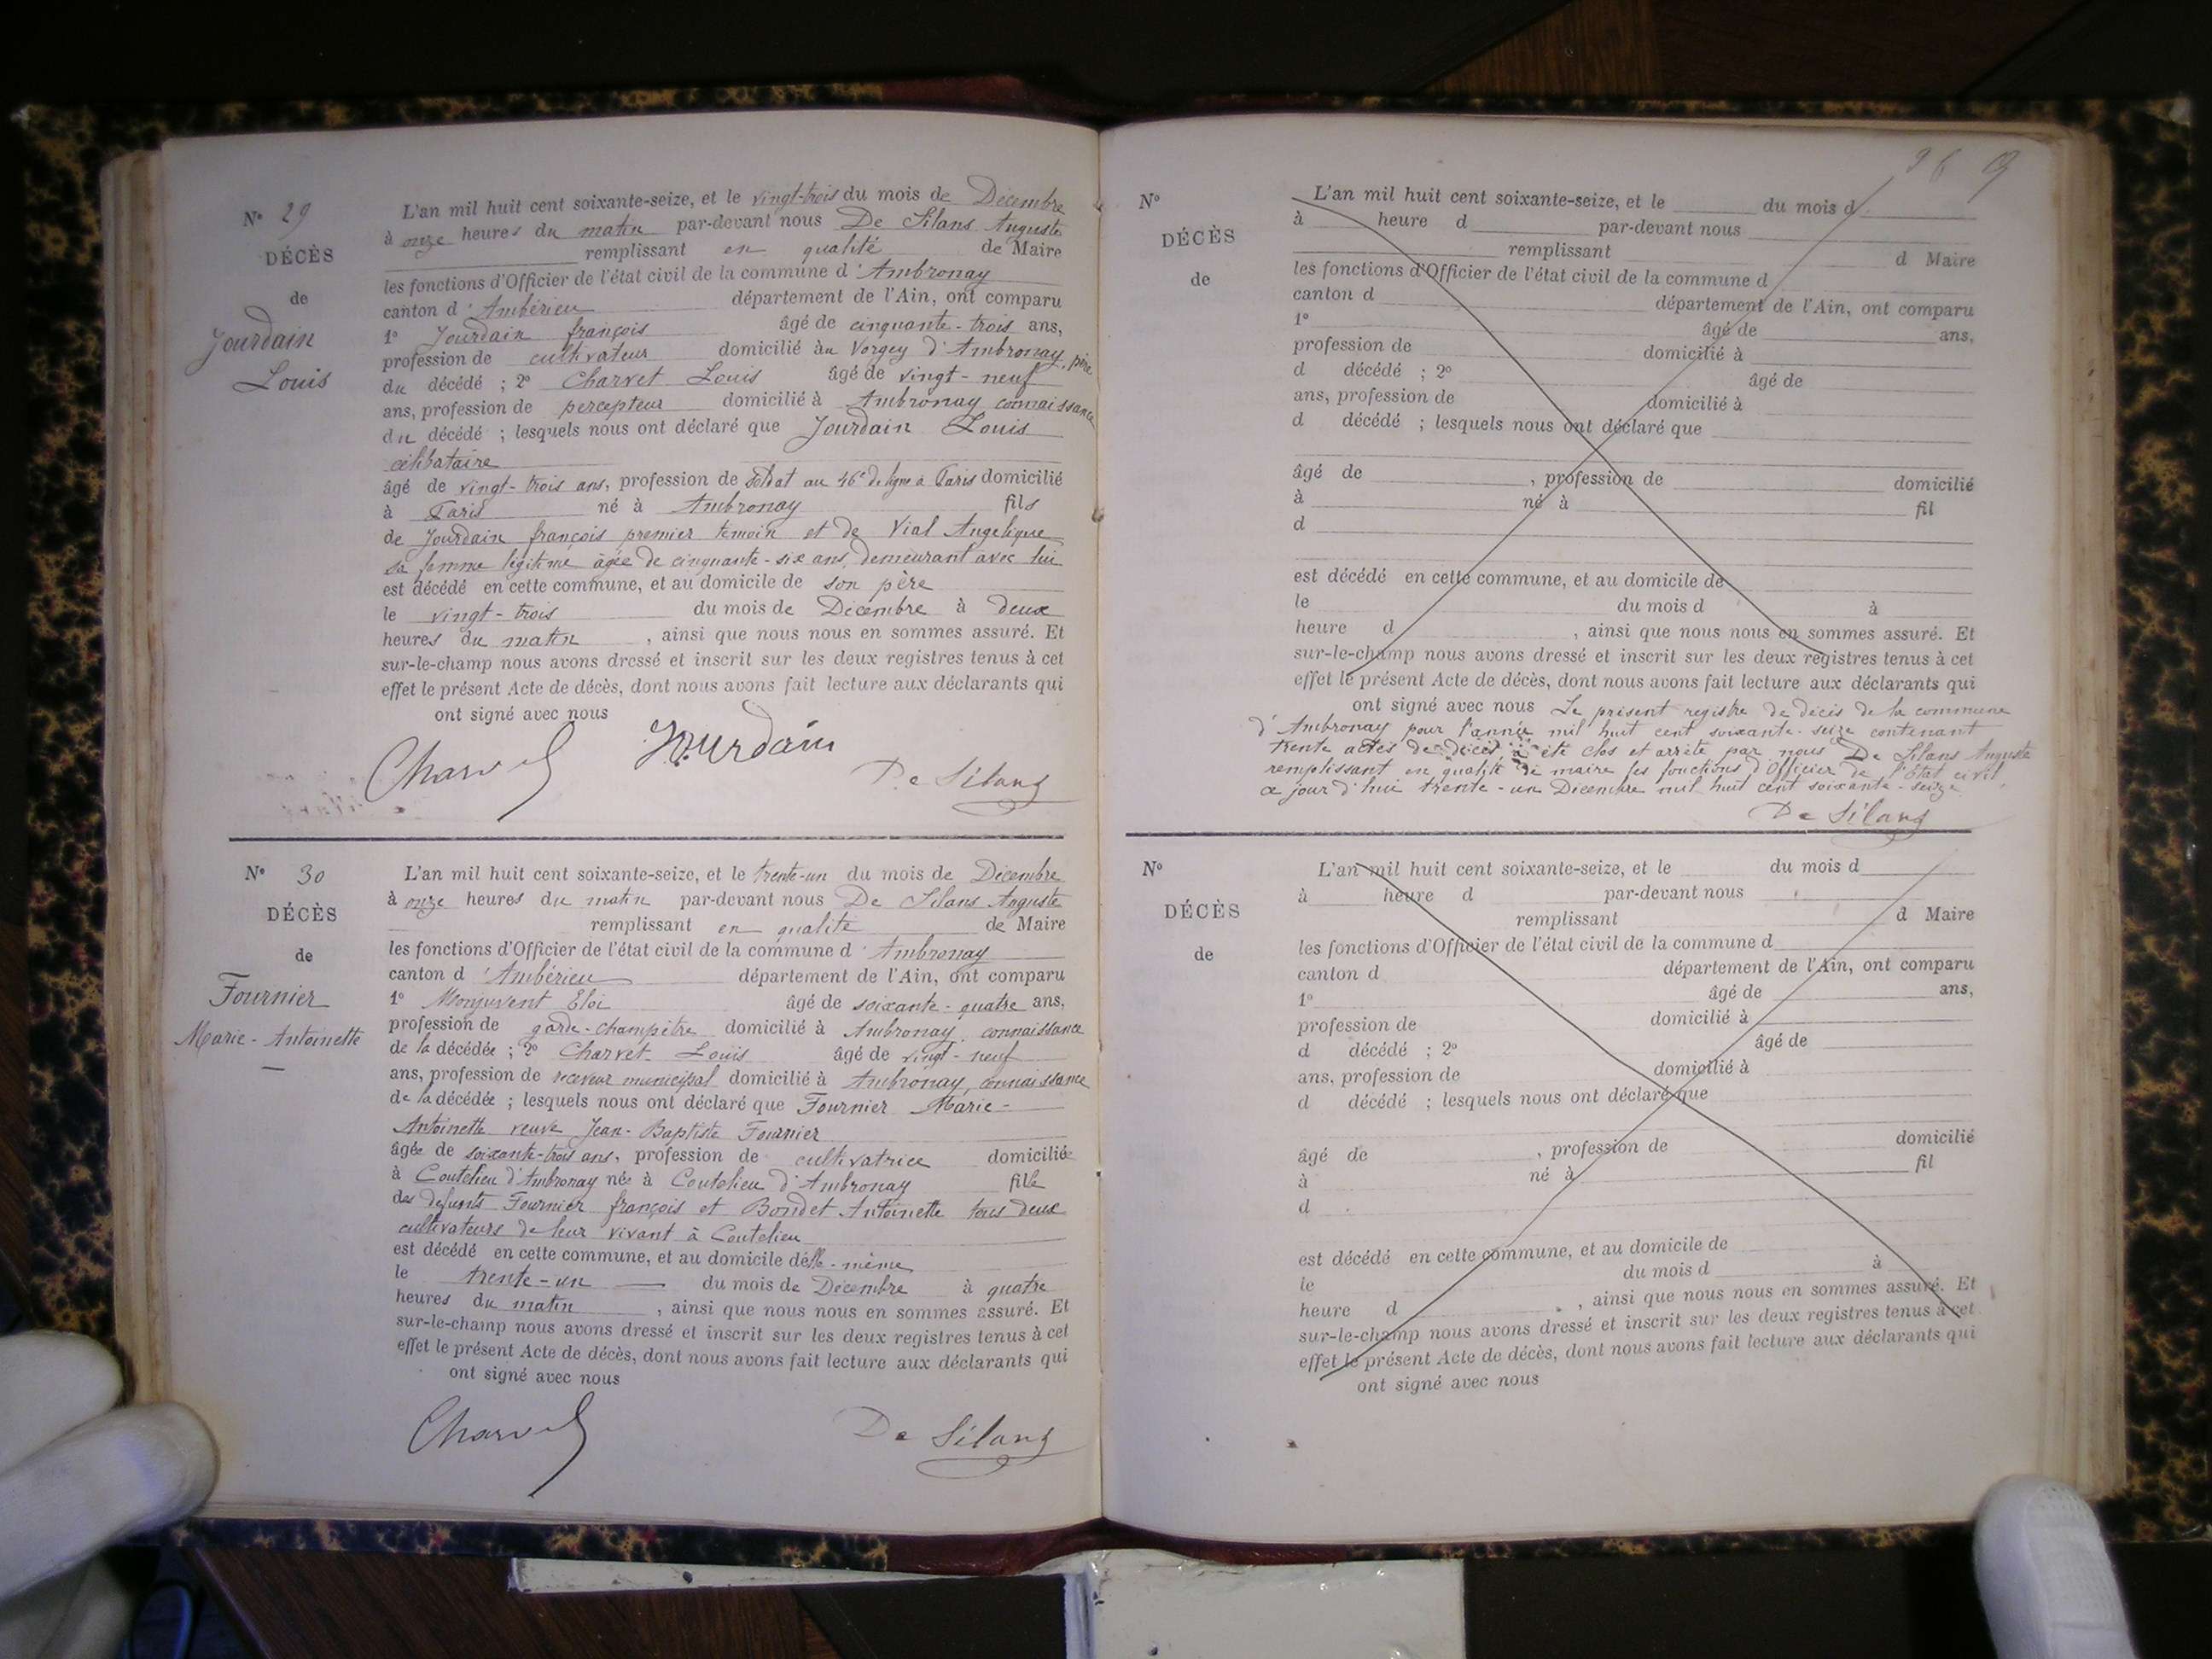 N° 29
DÉCÈS
de
Jourdain
Louis
L'an mil huit cent soixante-seize, et le vingt-trois du mois de Décembre
à onze heures du matin par-devant nous De Silans Auguste
remplissant en qualité de Maire
les fonctions d'Officier de l'état civil de la commune d'Ambronay
canton d'Ambérieu département de l'Ain, ont comparu
1° Jourdain françois âgé de cinquante-trois ans,
profession de cultivateur domicilié au Vorgey d'Ambronay, père
du décédé ; 2° Charvet Louis âgé de vingt-neuf
ans, profession de percepteur domicilié à Ambronay connaissance
du décédé ; lesquels nous ont déclaré que Jourdain Louis
célibataire
âgé de vingt-trois ans, profession de soldat au 46e de ligne à Paris domicilié
à Paris né à Ambronay fils
de Jourdain françois premier temoin et de Vial Angelique
sa femme légitime âgée de cinquante-six ans, demeurant avec lui
est décédé en cette commune, et au domicile de son père
le vingt-trois du mois de Décembre à deux
heures du matin , ainsi que nous nous en sommes assuré. Et
sur-le-champ nous avons dressé et inscrit sur les deux registres tenus à cet
effet le présent Acte de décès, dont nous avons fait lecture aux déclarants qui
ont signé avec nous
Charvet Jourdain De Silans
N° 30
DÉCÈS
de
Fournier
Marie-Antoinette
L'an mil huit cent soixante-seize, et le trente-un du mois de Décembre
à onze heures du matin par-devant nous De Silans Auguste
remplissant en qualité de Maire
les fonctions d'Officier de l'état civil de la commune d'Ambronay
canton d'Ambérieu département de l'Ain, ont comparu
1° Monjuvent Eloi âgé de soixante-quatre ans,
profession de garde-champêtre domicilié à Ambronay, connaissance
de la décédée ; 2° Charvet Louis âgé de vingt-neuf
ans, profession de receveur municipal domicilié à Ambronay, connaissance
de la décédée ; lesquels nous ont déclaré que Fournier Marie-
Antoinette veuve Jean-Baptiste Fournier
âgée de soixante-trois ans, profession de cultivatrice domiciliée
à Coutelieu d'Ambronay née à Coutelieu d'Ambronay fille
des defunts Fournier françois et Bondet Antoinette tous deux
cultivateurs de leur vivant à Coutelieu
est décédé en cette commune, et au domicile d'elle-même
le trente-un du mois de Décembre à quatre
heures du matin , ainsi que nous nous en sommes assuré. Et
sur-le-champ nous avons dressé et inscrit sur les deux registres tenus à cet
effet le présent Acte de décès, dont nous avons fait lecture aux déclarants qui
ont signé avec nous
Charvet De Silans
N°
DÉCÈS
de
L'an mil huit cent soixante-seize, et le du mois d
à heure d par-devant nous
remplissant d Maire
les fonctions d'Officier de l'état civil de la commune d
canton d département de l'Ain, ont comparu
1° âgé de ans,
profession de domicilié à
d décédé ; 2° âgé de
ans, profession de domicilié à
d décédé ; lesquels nous ont déclaré que
âgé de , profession de domicilié
à né à fil
d
est décédé en cette commune, et au domicile de
le du mois d à
heure d , ainsi que nous nous en sommes assuré. Et
sur-le-champ nous avons dressé et inscrit sur les deux registres tenus à cet
effet le présent Acte de décès, dont nous avons fait lecture aux déclarants qui
ont signé avec nous Le présent registre de décès de la commune
d'Ambronay pour l'année mil huit cent soixante-seize contenant
trente actes de décès à été clos et arrêté par nous De Silans Auguste
remplissant en qualité de maire les fonctions d'Officier de l'état civil
ce jour d'hui trente-un Décembre mil huit cent soixante-seize
De Silans
N°
DÉCÈS
de
L'an mil huit cent soixante-seize, et le du mois d
à heure d par-devant nous
remplissant d Maire
les fonctions d'Officier de l'état civil de la commune d
canton d département de l'Ain, ont comparu
1° âgé de ans,
profession de domicilié à
d décédé ; 2° âgé de
ans, profession de domicilié à
d décédé ; lesquels nous ont déclaré que
âgé de , profession de domicilié
à né à fil
d
est décédé en cette commune, et au domicile de
le du mois d à
heure d , ainsi que nous nous en sommes assuré. Et
sur-le-champ nous avons dressé et inscrit sur les deux registres tenus à cet
effet le présent Acte de décès, dont nous avons fait lecture aux déclarants qui
ont signé avec nous